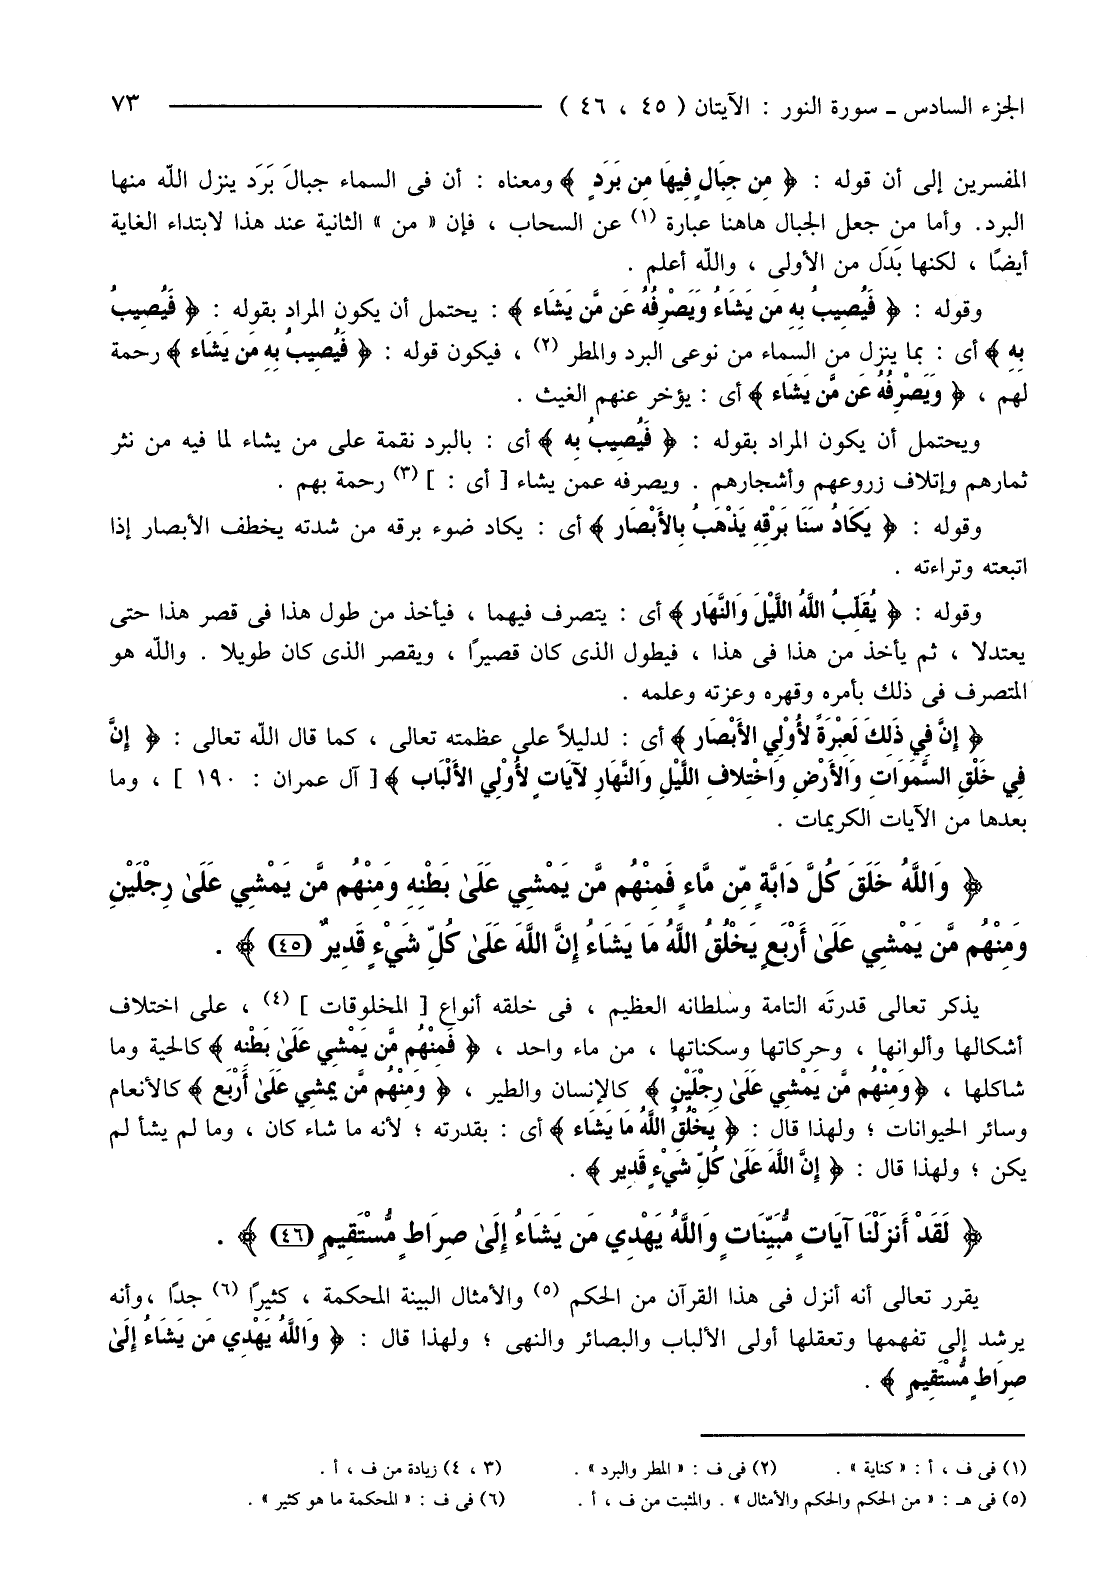 الجزء السادس ـ سورة النور : الآيتان ( ٤٥ ، ٤٦ ) ٧٣
المفسرين إلى أن قوله : ﴿ مِن جِبَالٍ فِيهَا مِن بَرَدٍ ﴾ ومعناه : أن فى السماء جبالَ بَرَد ينزل الله منها
البرد. وأما من جعل الجبال هاهنا عبارة (١) عن السحاب ، فإن « من » الثانية عند هذا لابتداء الغاية
أيضًا ، لكنها بَدَل من الأولى ، والله أعلم .
وقوله : ﴿ فَيُصِيبُ بِهِ مَن يَشَاءُ وَيَصْرِفُهُ عَن مَّن يَشَاء ﴾ : يحتمل أن يكون المراد بقوله : ﴿ فَيُصِيبُ
بِهِ ﴾ أى : بما ينزل من السماء من نوعى البرد والمطر (٢) ، فيكون قوله : ﴿ فَيُصِيبُ بِهِ مَن يَشَاء ﴾ رحمة
لهم ، ﴿ وَيَصْرِفُهُ عَن مَّن يَشَاء ﴾ أى : يؤخر عنهم الغيث .
ويحتمل أن يكون المراد بقوله : ﴿ فَيُصِيبُ بِه ﴾ أى : بالبرد نقمة على من يشاء لما فيه من نثر
ثمارهم وإتلاف زروعهم وأشجارهم . ويصرفه عمن يشاء [ أى : ] (٣) رحمة بهم .
وقوله : ﴿ يَكَادُ سَنَا بَرْقِهِ يَذْهَبُ بِالأَبْصَار ﴾ أى : يكاد ضوء برقه من شدته يخطف الأبصار إذا
اتبعته وتراءته .
وقوله : ﴿ يُقَلِّبُ اللَّهُ اللَّيْلَ وَالنَّهَار ﴾ أى : يتصرف فيهما ، فيأخذ من طول هذا فى قصر هذا حتى
يعتدلا ، ثم يأخذ من هذا فى هذا ، فيطول الذى كان قصيرًا ، ويقصر الذى كان طويلا . والله هو
المتصرف فى ذلك بأمره وقهره وعزته وعلمه .
﴿ إِنَّ فِي ذَلِكَ لَعِبْرَةً لأُوْلِي الأَبْصَار ﴾ أى : لدليلاً على عظمته تعالى ، كما قال الله تعالى : ﴿ إِنَّ
فِي خَلْقِ السَّمَوَاتِ وَالأَرْضِ وَاخْتِلافِ اللَّيْلِ وَالنَّهَارِ لآيَاتٍ لأُوْلِي الأَلْبَاب ﴾ [ آل عمران : ١٩٠ ] ، وما
بعدها من الآيات الكريمات .
﴿ وَاللَّهُ خَلَقَ كُلَّ دَابَّةٍ مِّن مَّاءٍ فَمِنْهُم مَّن يَمْشِي عَلَىٰ بَطْنِهِ وَمِنْهُم مَّن يَمْشِي عَلَىٰ رِجْلَيْنِ
وَمِنْهُم مَّن يَمْشِي عَلَىٰ أَرْبَعٍ يَخْلُقُ اللَّهُ مَا يَشَاءُ إِنَّ اللَّهَ عَلَىٰ كُلِّ شَيْءٍ قَدِيرٌ (٤٥) ﴾ .
يذكر تعالى قدرتَه التامة وسلطانه العظيم ، فى خلقه أنواع [ المخلوقات ] (٤) ، على اختلاف
أشكالها وألوانها ، وحركاتها وسكناتها ، من ماء واحد ، ﴿ فَمِنْهُم مَّن يَمْشِي عَلَىٰ بَطْنِه ﴾ كالحية وما
شاكلها ، ﴿ وَمِنْهُم مَّن يَمْشِي عَلَىٰ رِجْلَيْنِ ﴾ كالإنسان والطير ، ﴿ وَمِنْهُم مَّن يمشِي عَلَىٰ أَرْبَع ﴾ كالأنعام
وسائر الحيوانات ؛ ولهذا قال : ﴿ يَخْلُقُ اللَّهُ مَا يَشَاء ﴾ أى : بقدرته ؛ لأنه ما شاء كان ، وما لم يشأ لم
يكن ؛ ولهذا قال : ﴿ إِنَّ اللَّهَ عَلَىٰ كُلِّ شَيْءٍ قَدِير ﴾ .
﴿ لَقَدْ أَنزَلْنَا آيَاتٍ مُّبَيِّنَاتٍ وَاللَّهُ يَهْدِي مَن يَشَاءُ إِلَىٰ صِرَاطٍ مُّسْتَقِيمٍ (٤٦) ﴾ .
يقرر تعالى أنه أنزل فى هذا القرآن من الحكم (٥) والأمثال البينة المحكمة ، كثيرًا (٦) جدًا ،وأنه
يرشد إلى تفهمها وتعقلها أولى الألباب والبصائر والنهى ؛ ولهذا قال : ﴿ وَاللَّهُ يَهْدِي مَن يَشَاءُ إِلَىٰ
صِرَاطٍ مُّسْتَقِيمٍ ﴾ .
(١) فى ف ، أ : « كناية » . (٢) فى ف : « المطر والبرد » . (٣ ، ٤) زيادة من ف ، أ .
(٥) فى هـ : « من الحكم والحكم والأمثال » . والمثبت من ف ، أ . (٦) فى ف : « المحكمة ما هو كثير » .